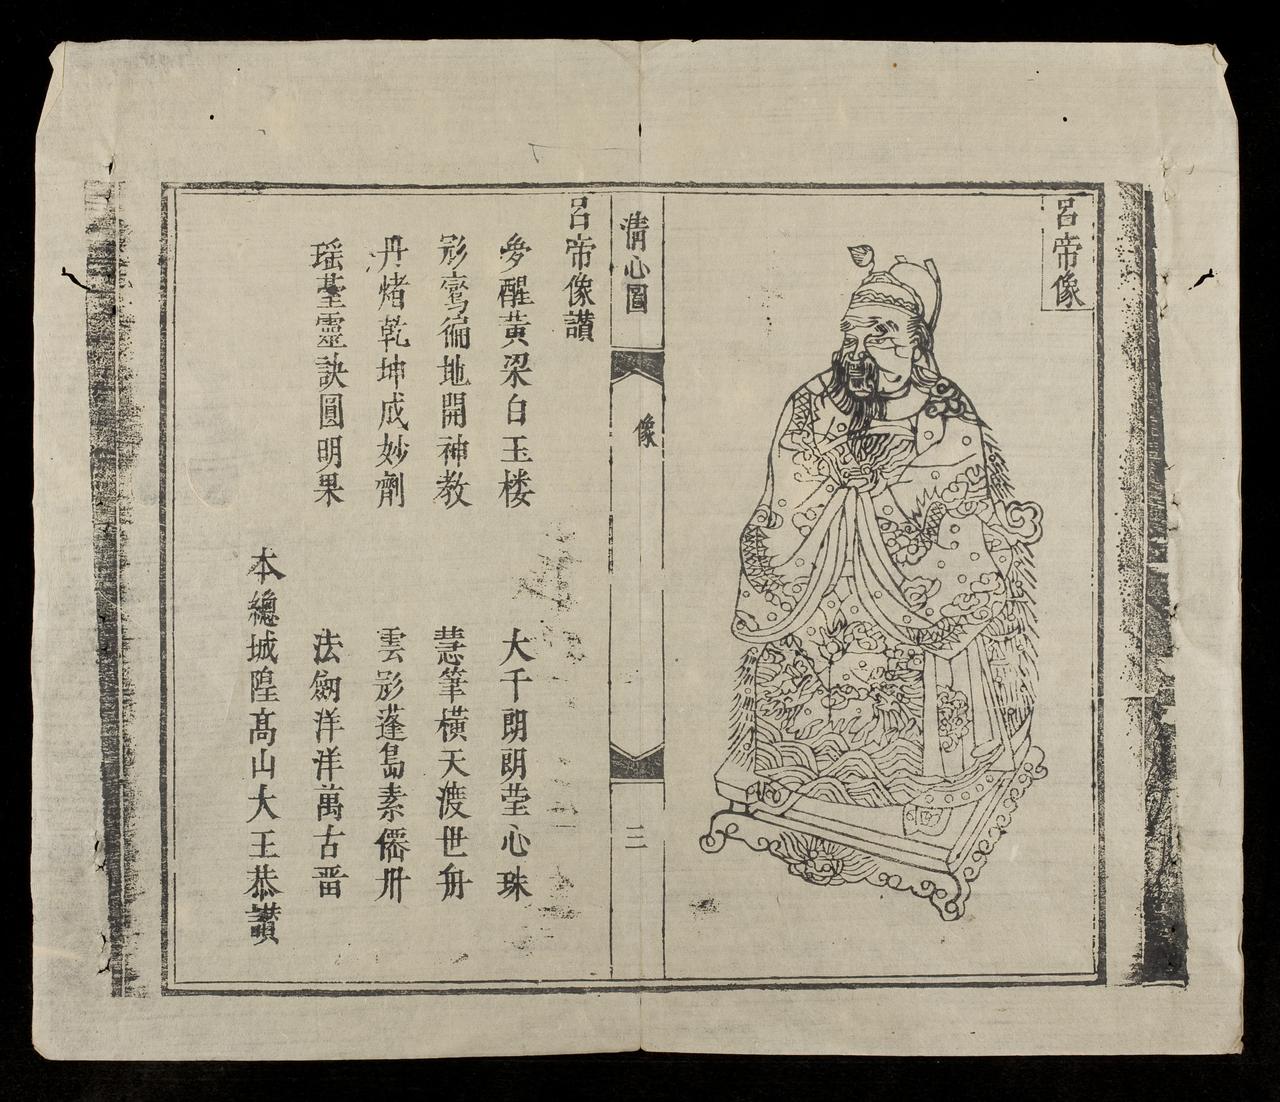 呂帝像
清心圖
像
三
呂帝像讃
夢醒黃梁白玉楼 大千朗朗莹心珠
彩鸾徧地開神教 慧筆橫天渡世舟
丹烤乾坤成妙劑 雲影蓬島素僊卅
瑶䑓靈訣圓明果 法劒洋洋萬古畱
本總城隍髙山大王恭讃